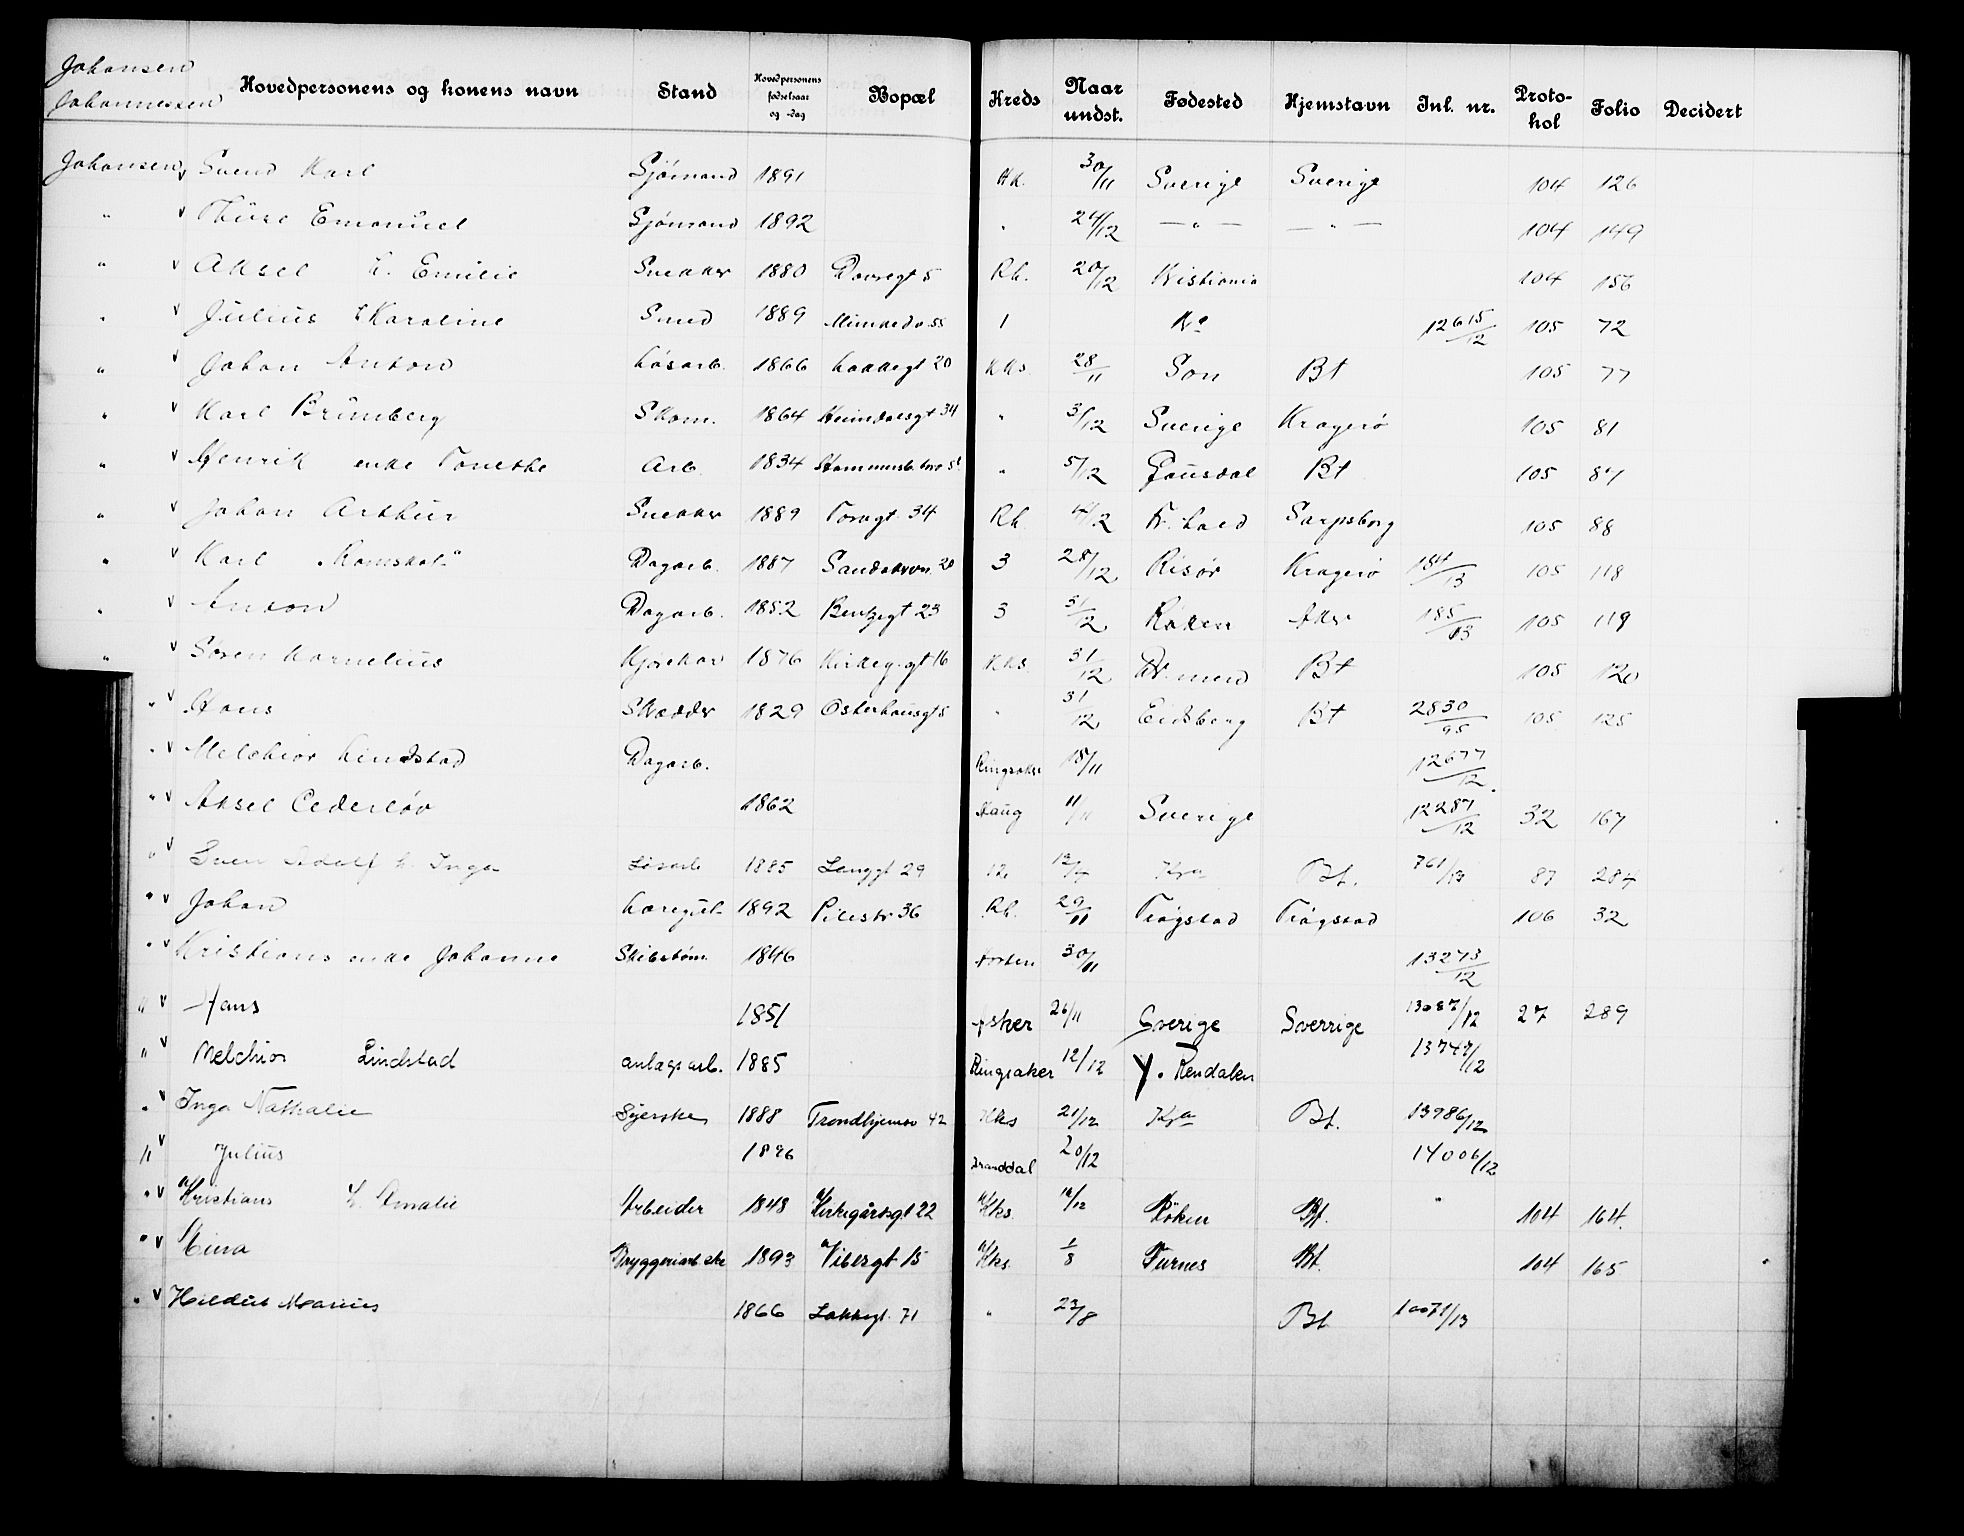 Johansen
Johannessen
Hovedpersonens og konens navn Stand Hovedpersonens fødselsaar og -dag Bopæl Kreds Naar undst. Fødested Hjemstavn Inl. nr. Proto-kol Folio Decidert
Johansen v Svend Karl Sjømand 1891 Kk. 30/11 Sverige Sverige 104 126
" v Thure Emanuel Sjømand 1892 " 24/12 — " — — " — 104 149
" v Aksel h. Emilie Snekker 1880 Dovregt 5 Rh. 20/12 Kristiania 104 156
" v Julius h Karoline Smed 1889 55 1 Kra 12615/12 105 72
" v Johan Anton Løsarb. 1866 Lakkegt 20 Kks 28/11 Son Bt 105 77
" v Karl Brumberg Skom. 1864 Heimdalsgt 34 " 3/12 Sverige Kragerø 105 81
" v Henrik enke Arb. 1834 " 5/12 Gausdal Bt 105 87
" v Johan Arthur Snekker 1889 Torvgt. 34 Rh. Fr. hald Sarpsborg 105 88
" v Karl Dagarb. 1887 20 3 28/12 Risør Kragerø 184/13 105 118
" v Anton Dagarb. 1852 Bentzegt 23 3 31/12 Røken Aker 185/13 105 119
" v Søren Kornelius Kjørekar 1876 Kirkeg.gt 16 Kks. 31/12 Bt 105 120
" v Hans Skrædder 1829 Osterhausgt 8 " 31/12 Eidsberg Bt 2830/95 105 125
" v Melchior Lindstad Dagarb. Ringsaker 18/11 12677/12.
" v Aksel Cederløv 1862 Haug 11/11 Sverige 12287/12 32 167
" v Sven Adolf h. Inga Løsarb 1885 Langgt 29 Kra Bt. 761/13 87 284
" v Johan 1892 Pilestr 36 Rh. 29/11 Trøgstad Trøgstad 106 32
" v Kristians enke Johanne Skibstøm. 1846 Horten 30/11 13273/12
" v Hans 1851 Asker 26/11 Sverige Sverrige 13087/12 27 289
" v Melchior Lindstad anlægsarb. 1885 Ringsaker 12/12 Y. Rendalen 13747/12
" v Inga Nathalie Syerske 1888 Trondhjemsv 42 Kks 21/12 Kra Bt. 13986/12
" v Julius 1896 20/12 14006/12
" v Kristians h. Amalie Arbeider 1848 Kirkegårdsgt 22 Kks. Røken Bt. " 104 164.
" v Bryggeriarb.ske 1893 Vibesgt 15 Kks. 1/8 Furnes Bt. 104 165
" v Marius 1866 Lakkegt. 71 " 23/8 Bt 10071/13